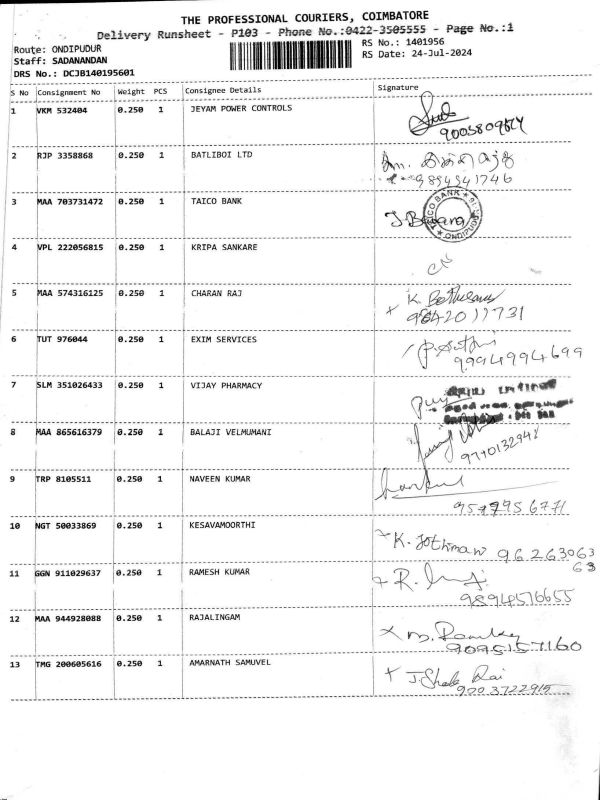 THE PROFESSIONAL COURIERS, COIMBATORE
Delivery Runsheet - P103 - Phone No.:0422-3505555 - Page No.:1
Route: ONDIPUDUR
RS No.: 1401956
Staff: SADANANDAN
RS Date: 24-Jul-2024
DRS No.: DCJB140195601
S No Consignment No Weight PCS Consignee Details Signature
1 VKM 532404 0.250 1 JEYAM POWER CONTROLS
2 RJP 3358868 0.250 1 BATLIBOI LTD
9894941746
3 MAA 703731472 0.250 1 TAICO BANK
TAICO BANK
ONDIPUDUR
4 VPL 222056815 0.250 1 KRIPA SANKARE
5 MAA 574316125 0.250 1 CHARAN RAJ
9842017731
6 TUT 976044 0.250 1 EXIM SERVICES
9994994699
7 SLM 351026433 0.250 1 VIJAY PHARMACY
8 MAA 865616379 0.250 1 BALAJI VELMUMANI
9 TRP 8105511 0.250 1 NAVEEN KUMAR
10 NGT 50033869 0.250 1 KESAVAMOORTHI
K. Jothimani 96 263063
63
11 GGN 911029637 0.250 1 RAMESH KUMAR
9894516655
12 MAA 944928088 0.250 1 RAJALINGAM
9095157160
13 TMG 200605616 0.250 1 AMARNATH SAMUVEL
9003722915